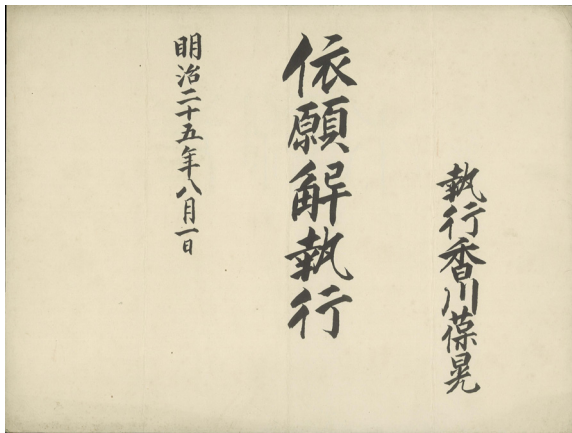 執行香川葆晃
依願解執行
明治二十五年八月一日